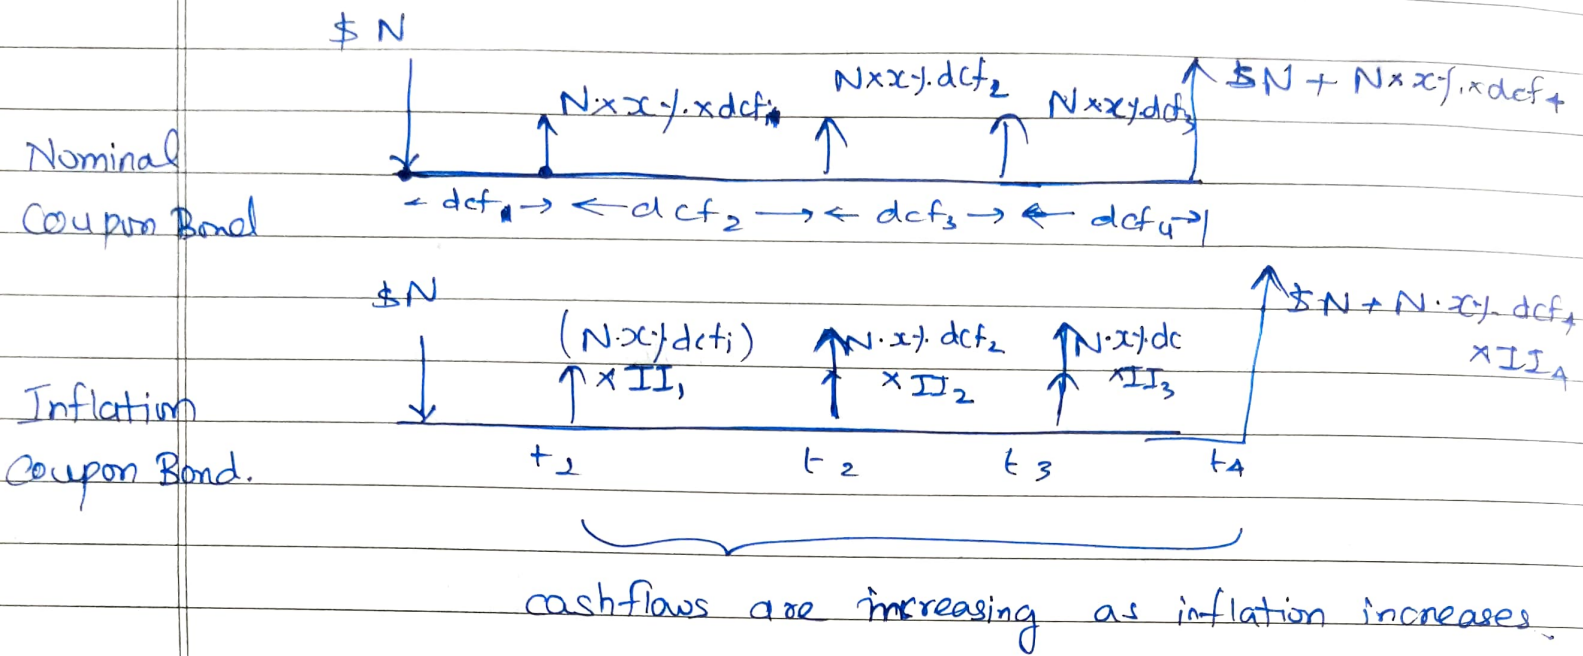 $ N
N×x%×dcf₁
N×x%.dcf₂
N×x%dcf₃
$N + N×x%×dcf₄
Nominal
Coupon Bond
← dcf₁ → ← dcf₂ → ← dcf₃ → ← dcf₄ →
$N
(N.x%dcf₁)
× II₁
N.x%.dcf₂
× II₂
N.x%dc
×II₃
$N + N.x%.dcf₄
×II₄
Inflation
Coupon Bond.
t₁ t₂ t₃ t₄
cashflows are increasing as inflation increases.